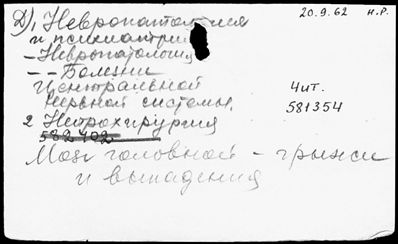 Д), Невропатология 20.9.62 н.р.
и психиатрия
– Невропатология
– – Болезни
центральной
нервной системы. Чит.
2 Нейрохирургия 581354
582402
Мозг головной – грыжи
и выпадения